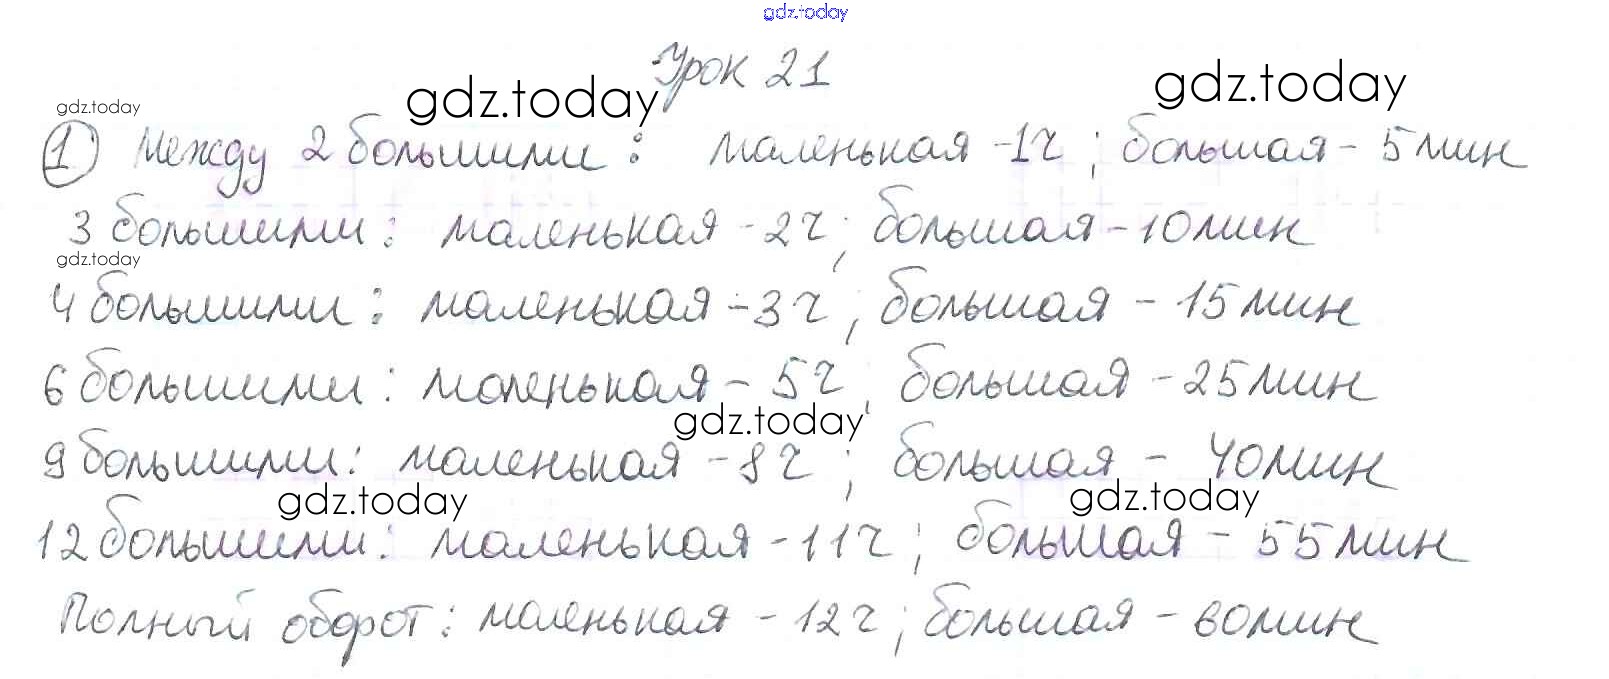 gdz.today
Урок 21
gdz.today gdz.today
gdz.today
1 Между 2 большими: маленькая - 1ч; большая - 5 мин
3 большими: маленькая - 2ч; большая - 10 мин
gdz.today
4 большими: маленькая - 3ч; большая - 15 мин
6 большими: маленькая - 5ч; большая - 25 мин
gdz.today
9 большими: маленькая - 8ч; большая - 40 мин
gdz.today gdz.today
12 большими: маленькая - 11ч; большая - 55 мин
Полный оборот: маленькая - 12ч; большая - 60 мин